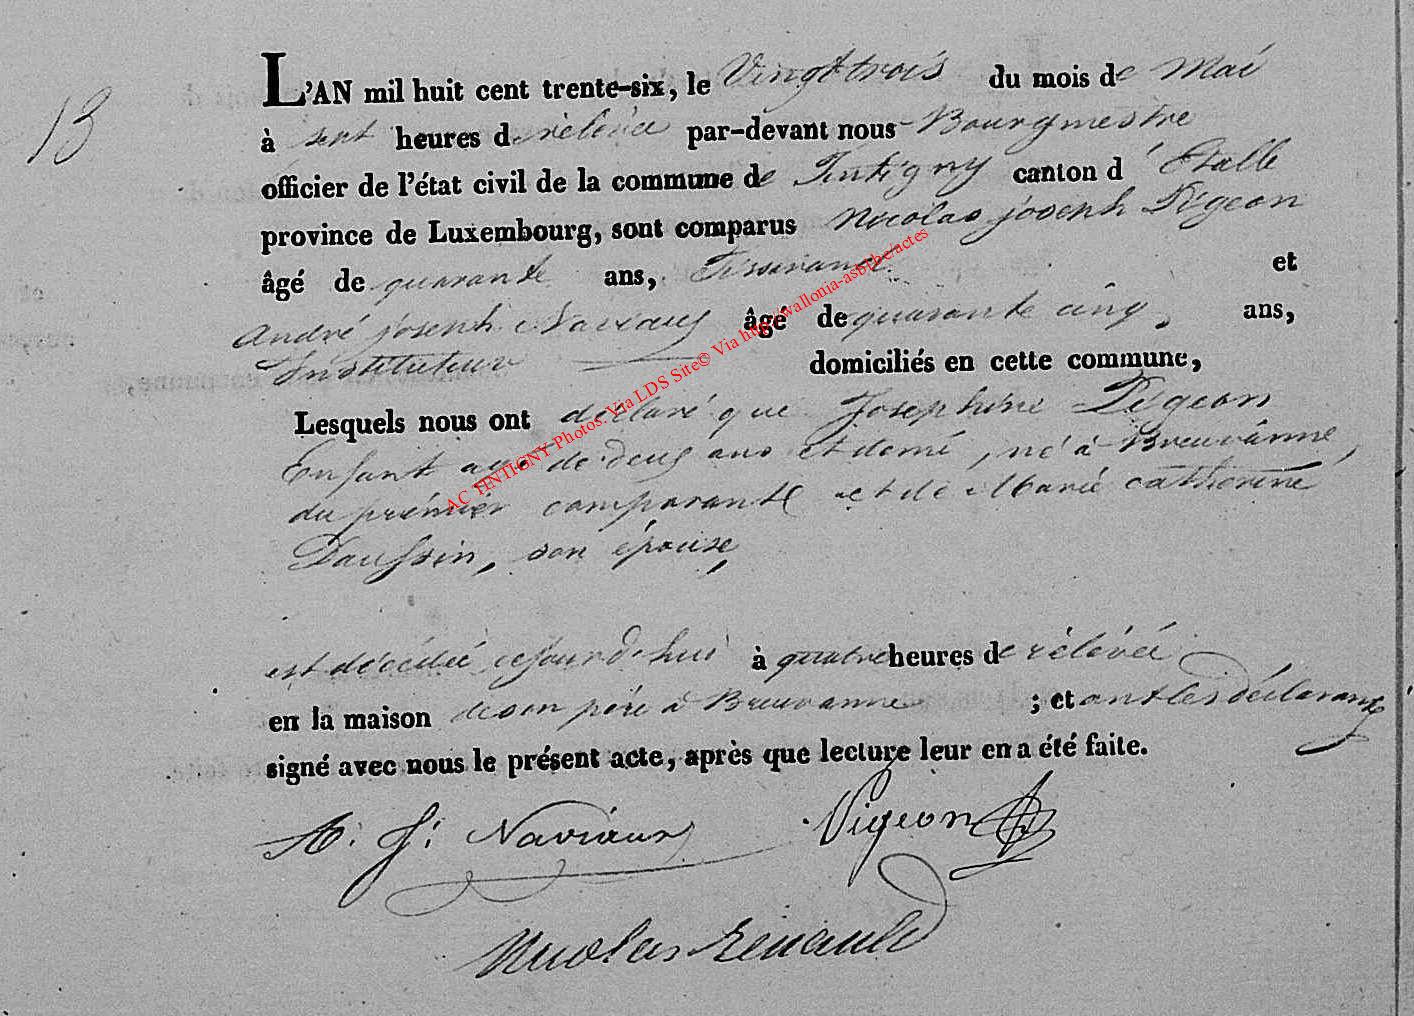 13
L'AN mil huit cent trente-six, le Vingt trois du mois de Mai
à sept heures de rélévée par-devant nous Bourgmestre
officier de l'état civil de la commune de Tintigny canton d'Étalle
province de Luxembourg, sont comparus Nicolas joseph Pigeon
âgé de quarante ans, Tisserand et
André joseph Naviaux âgé de quarante cinq, ans,
Instituteur domiciliés en cette commune,
Lesquels nous ont déclaré que Joséphine Pigeon
Enfant agé de deux ans et demi, né à Breuvanne,
du prémier comparant et de Marie catherine
son épouse,
est décédée cejourd'hui à quatre heures de rélévée
en la maison de son père à Breuvanne ; et ont les déclarants
signé avec nous le présent acte, après que lecture leur en a été faite.
A. J. Naviaux Pigeon
Nicolas Renauld
AC TINTIGNY Photos. Via LDS Site© Via http://wallonia-asbl.be/actes